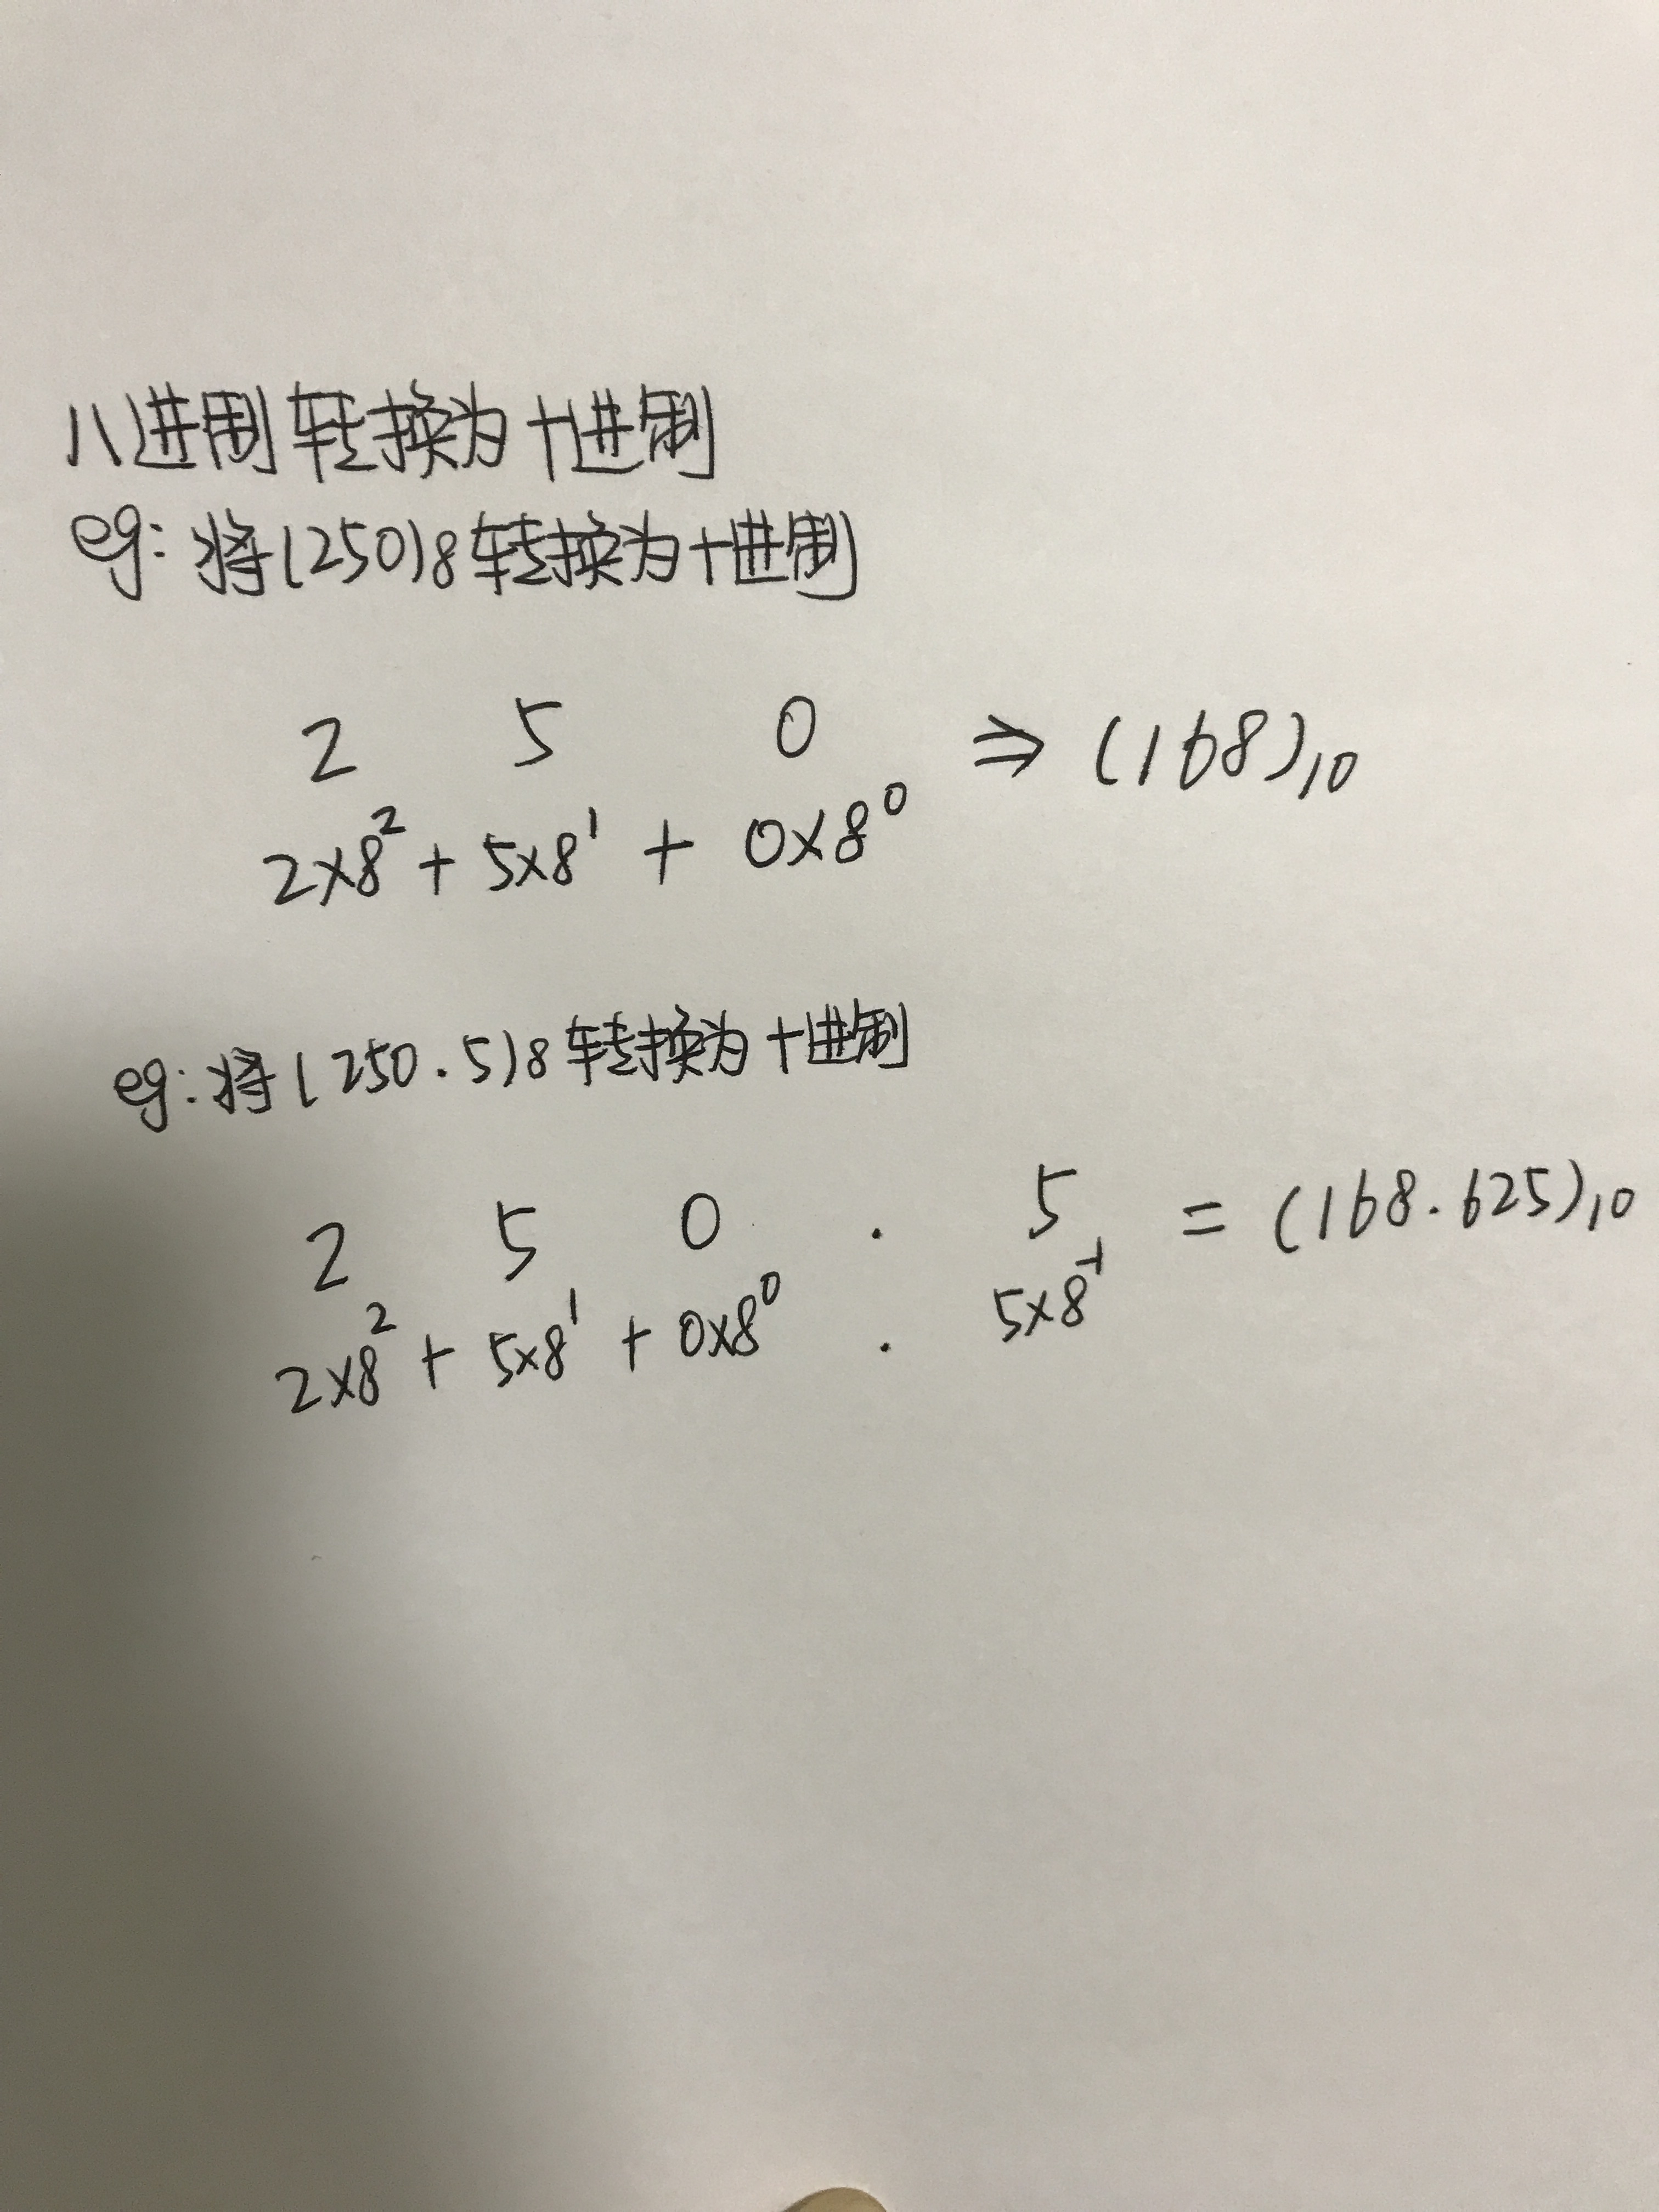 八进制转换为十进制
eg: 将(250)8转换为十进制
2 5 0 ⇒ (168)₁₀
2×8² + 5×8¹ + 0×8⁰
eg: 将(250.5)8转换为十进制
2 5 0 . 5 = (168.625)₁₀
2×8² + 5×8¹ + 0×8⁰ . 5×8⁻¹